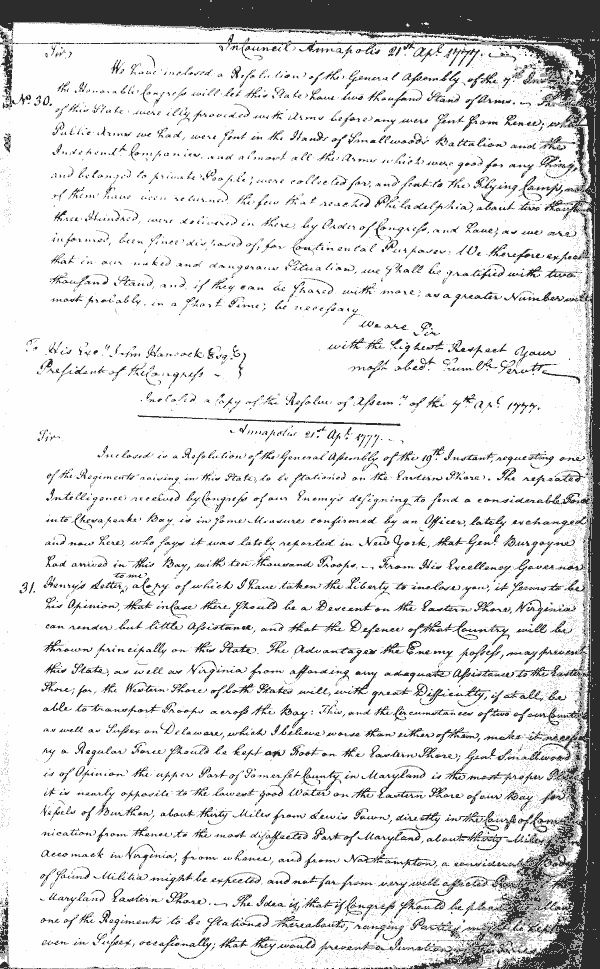 In Council Annapolis 21st Apl. 1777.
Sir,
We have inclosed a Resolution of the General Assembly of the 7th Inst.
the Honorable Congress will let this State have two thousand Stand of Arms. The
No. 30.
of this State were illy provided with Arms before any were sent from hence; what
Public Arms we had, were sent in the Hands of Smallwoods Battalion and the
Independt. Companies, and almost all the Arms which were good for any Thing,
and belonged to private People, were collected for, and sent to the Flying Camp,
of them have been returned, the few that reached Philadelphia, about two thousand
three Hundred, were delivered in there, by Order of Congress, and have, as we are
informed, been since disposed of, for Continental Purposes: We therefore expect
that in our naked and dangerous Situation, we shall be gratified with two
thousand Stand, and, if they can be spared with more; as a greater Number will
most probably, in a short Time, be necessary
We are Sir
with the highest Respect Your
most obedt. Humble Servts.
To His Excy. John Hancock Esqr.
President of the Congress
Inclosed a Copy of the Resolve of Assemy. of the 7th Apl. 1777.
Annapolis 21st Apl. 1777.
Sir
Inclosed is a Resolution of the General Assembly of the 19th Instant, requesting one
of the Regiments raising in this State, to be stationed on the Eastern Shore. The repeated
Intelligence received by Congress of our Enemy's designing to send a considerable Force
into Chesapeake Bay is in some Measure confirmed by an Officer, lately exchanged
and now here, who says it was lately reported in New York, that Genl. Burgoyne
had arrived in this Bay, with ten thousand Troops. From His Excellency Governor
31.
Henry's Letter to me, a Copy of which I have taken the Liberty to inclose you, it seems to be
his Opinion, that in Case there should be a Descent on the Eastern Shore, Virginia
can render but little Assistance, and that the Defence of that Country will be
thrown principally on this State. The Advantages the Enemy possess, may prevent
this State, as well as Virginia from affording any adequate Assistance to the Eastern
Shore, for, the Western Shore of both States will, with great Difficulty, if at all, be
able to transport Troops across the Bay: This, and the Circumstances of two of our Counties
as well as Sussex on Delaware, which I believe worse than either of them, make it necessa
ry a Regular Force should be kept on Foot on the Eastern Shore; Genl. Smallwood
is of Opinion the upper Part of Somerset County, in Maryland is the most proper Place
it is nearly opposite to the lowest good Water on the Eastern Shore of our Bay for
Vessels of Burthen, about thirty Miles from Lewis Town, directly in the Course of Commu
nication from thence to the most disaffected Part of Maryland, about thirty Miles
Accomack in Virginia, from whence, and from Northampton, a considerable Body
of sound Militia might be expected, and not far from very well affected
Maryland Eastern Shore. The Idea is, that if Congress should be pleased to allow
one of the Regiments to be stationed thereabouts, ranging Parties may be kept
even in Sussex, occasionally; that they would prevent a Junction